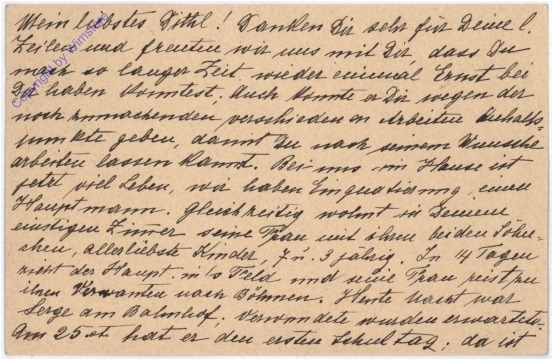 Mein liebstes Dithl! Danken Dir sehr für Deine l.
Zeilen und freuten wir uns mit Dir, dass Du
nach so langer Zeit wieder einmal Ernst bei
Dir haben konntest. Auch konnte er Dir wegen der
noch zumachenden verschiedenen Arbeiten Anhalts-
punkte geben, damit Du nach seinem Wunsche
arbeiten lassen kannst. Bei uns im Hause ist
jetzt viel Leben, wir haben Einquatierung, einen
Hauptmann. Gleichzeitig wohnt in Deinem
einstigen Zimmer seine Frau mit ihren beiden Söhn-
chen, allerliebste Kinder, 7 u. 3 jährig. In 14 Tagen
zieht der Haupt. in's Feld und seine Frau reist zu
ihren Verwanten nach Böhmen. Heute Nacht war
Serge am Bahnhof, Verwundete wurden erwartet.
Am 25st hat er den ersten Schultag; da ist
Copyright by Wimsteig